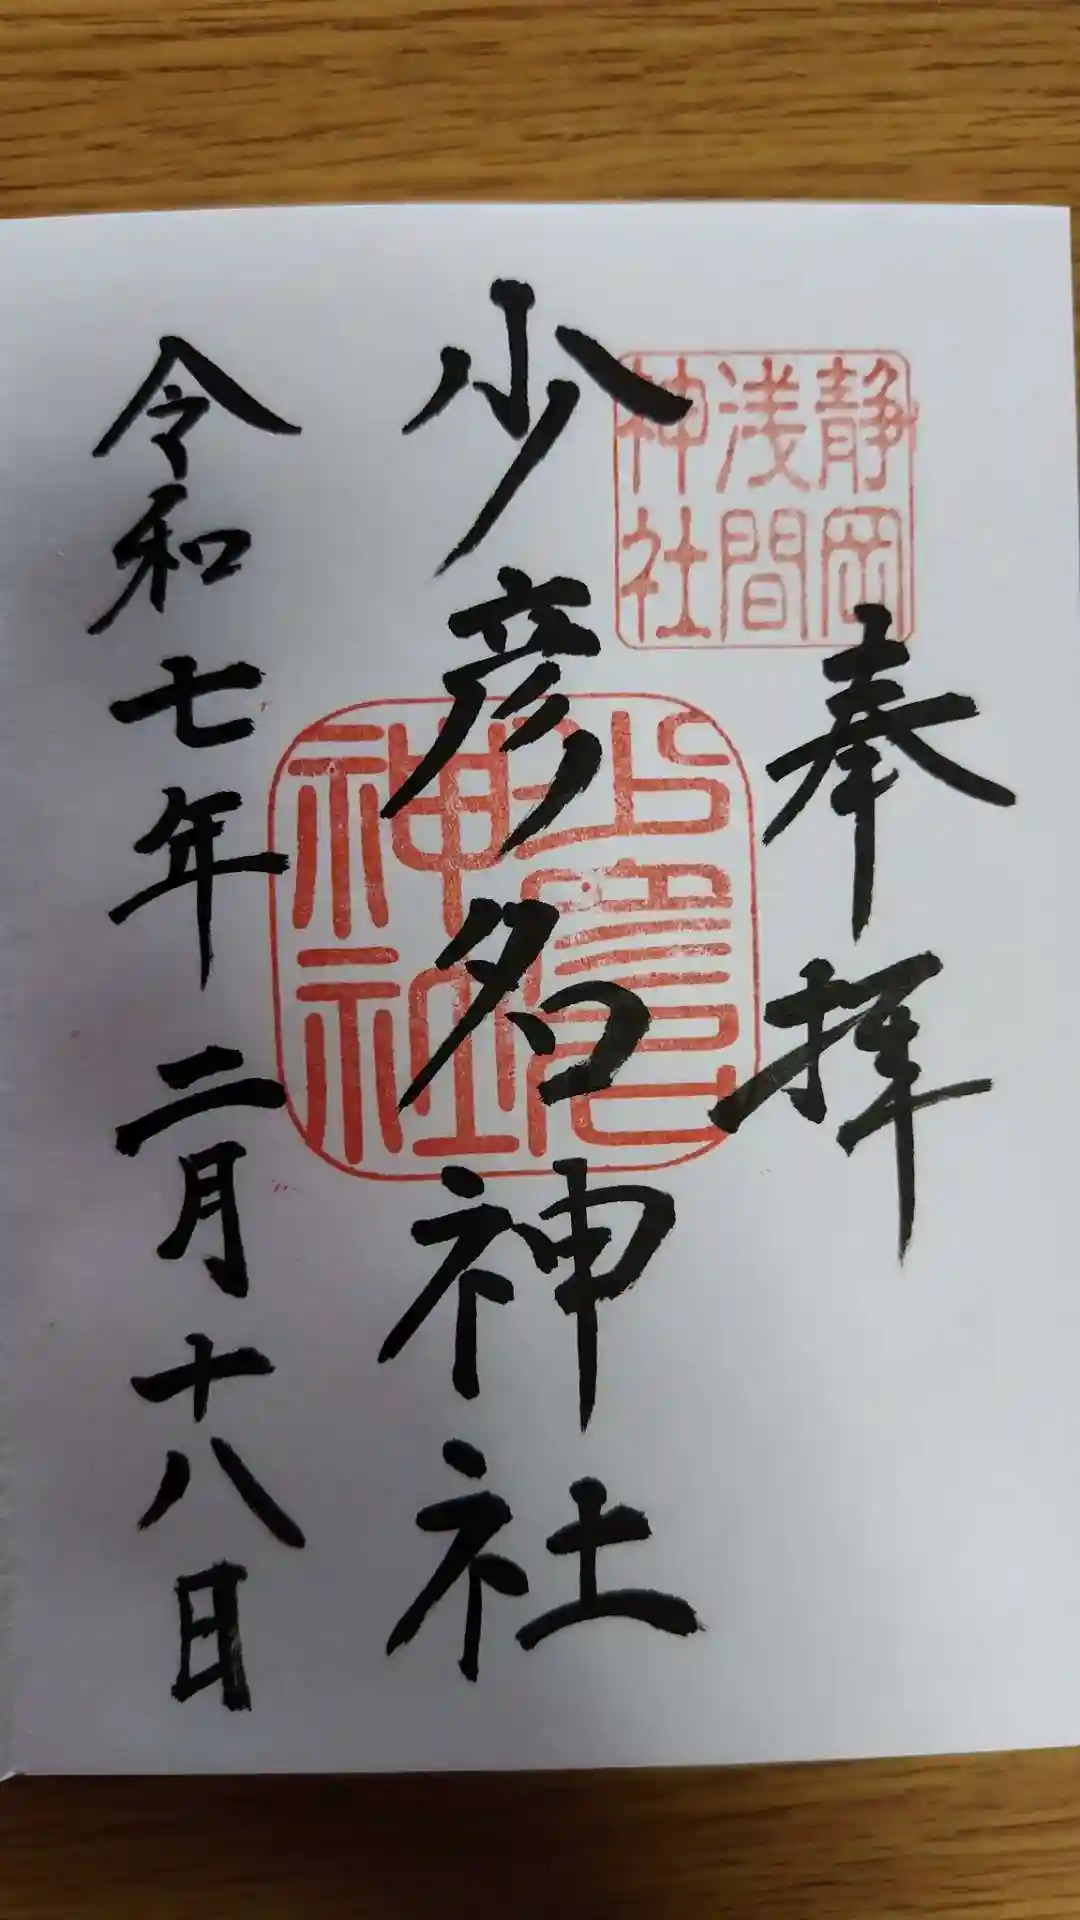 奉拝
静岡
浅間
神社
少彦名神社
少彦名
神社
令和七年二月十八日